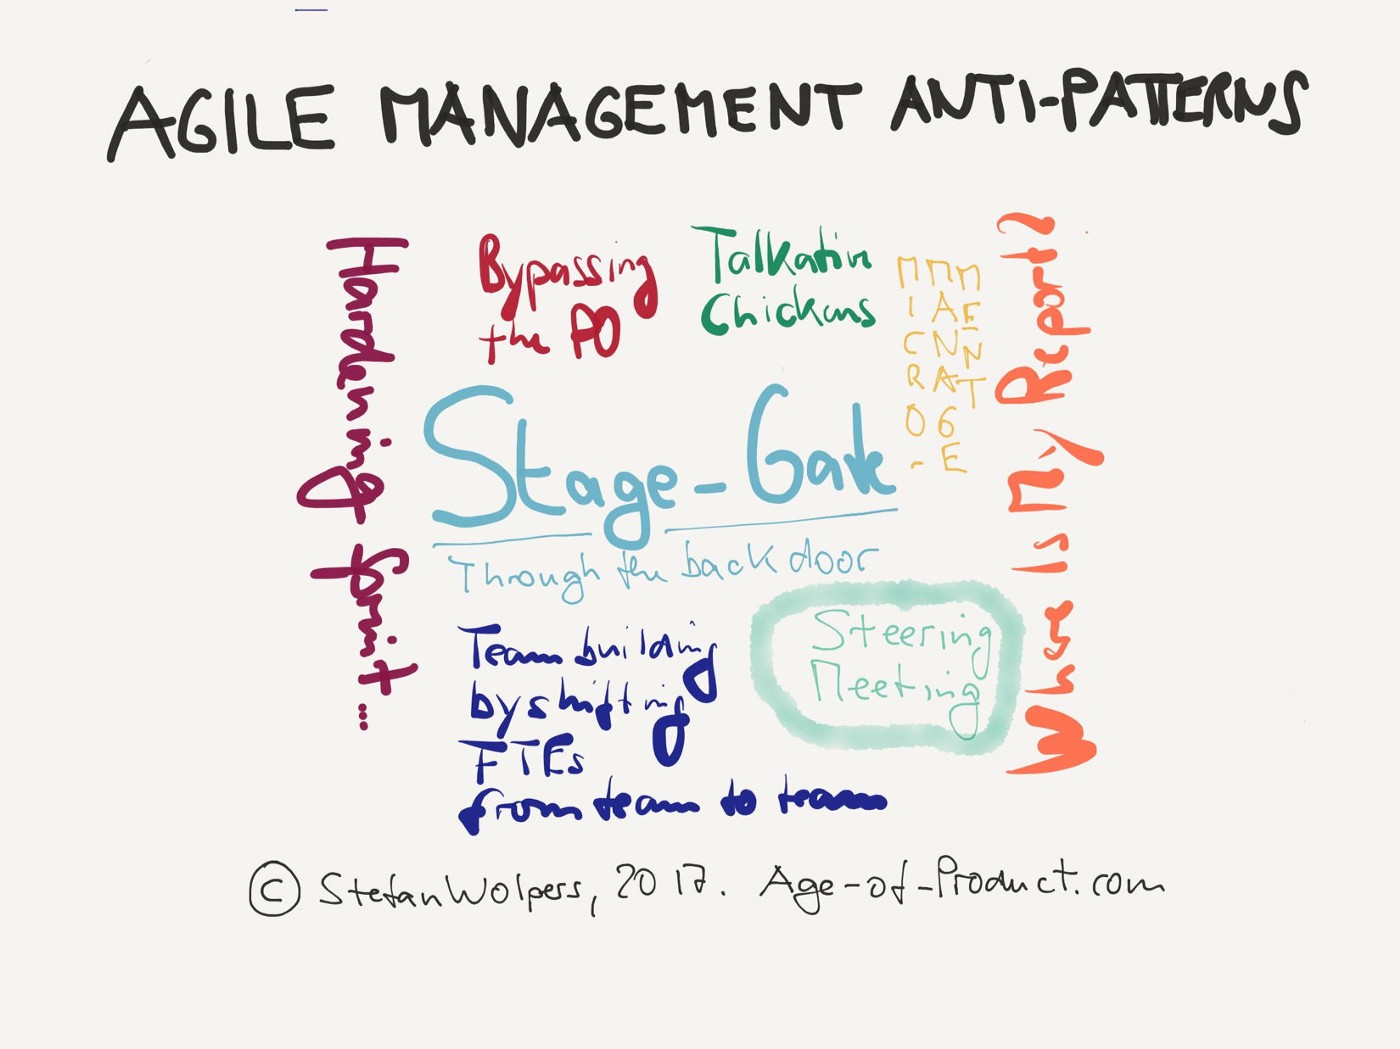 AGILE MANAGEMENT ANTI-PATTERNS
Hardening Sprint...
Bypassing
the PO
Talkativ
Chickens
MICRO-
MANAGE
MENT
Where Is My Report?
Stage-Gate
Through the back door
Team building
by shifting
FTEs
from team to team
Steering
Meeting
© Stefan Wolpers, 2017. Age-of-Product.com